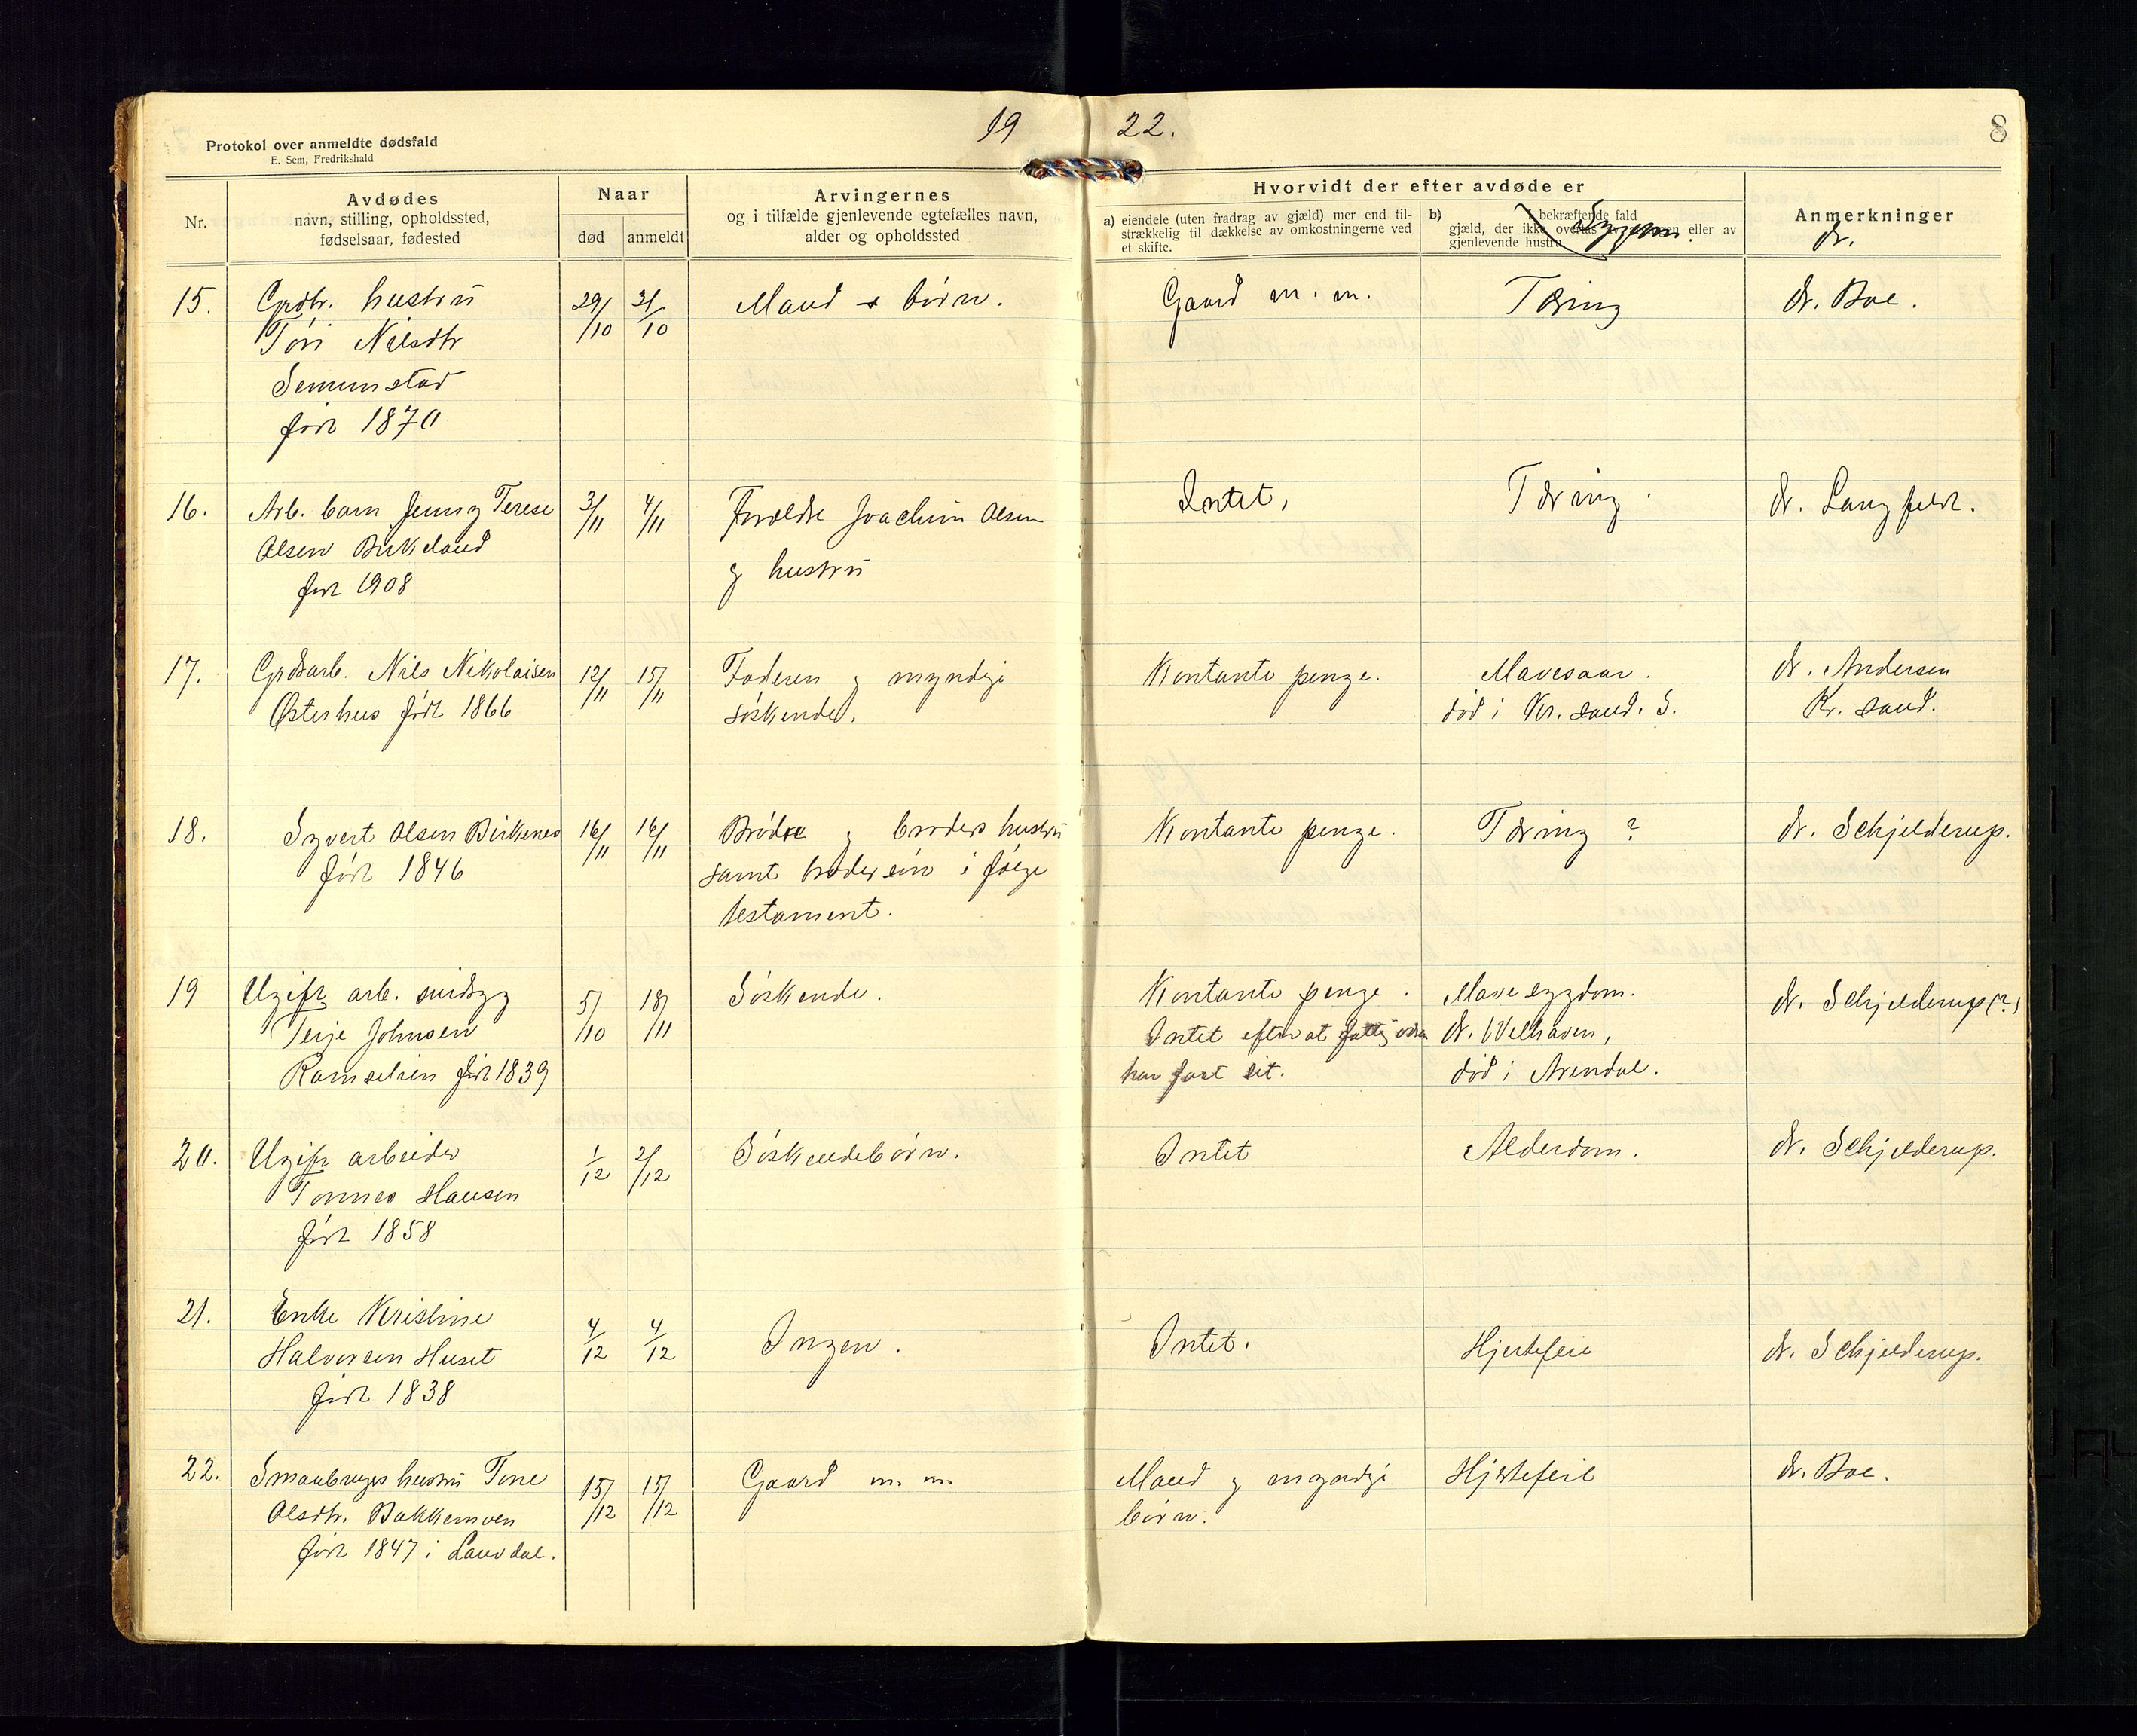 Protokol over anmeldte dødsfald
E. Sem, Fredrikshald
19 22.
8
Nr.
Avdødes
navn, stilling, opholdssted,
fødselsaar, fødested
Naar
død anmeldt
Arvingernes
og i tilfælde gjenlevende egtefælles navn,
alder og opholdssted
Hvorvidt der efter avdøde er
a) eiendele (uten fradrag av gjæld) mer end til-
strækkelig til dækkelse av omkostningerne ved
et skifte.
b) I bekræftende fald
gjæld, der ikke overtas eller av
gjenlevende hustru
Sygdom.
Anmerkninger
dr.
15. Grdbr. hustru 29/10 31/10 Mand + børn. Gaard m. m. Tæring dr. Boe.
Tøri Nilsdtr
Semumstad
født 1870
16. Arb. barn Jenny Terese 3/11 4/11 Forældre Joachim Olsen Intet, Tæring. dr. Langfeldt.
Olsen Birkeland og hustru
født 1908
17. Grdsarb. Nils Nikolaisen 12/11 15/11 Faderen og myndige Kontante penge. Mavesaar. dr. Andersen
Østerhus født 1866 søskende. død i Kr. sand. S. Kr. sand.
18. Syvert Olsen Birkenes 16/11 16/11 Brødre og broders hustru Kontante penge. Tæring ? dr. Schjelderup.
født 1846 samt brodersøn i følge
testament.
19 Ugift arb. sindsyg 5/10 18/11 Søskende. Kontante penge. Mavesygdom. dr. Schjelderup (?)
Terje Johnsen Intet efter at fattigv. dr. Welhaven,
Ramselien født 1839 har faat sit. død i Arendal.
20. Ugift arbeider 1/12 2/12 Søskendebørn. Intet Alderdom. dr. Schjelderup.
Tønnes Hansen
født 1858
21. Enke Kristine 4/12 4/12 Ingen. Intet. Hjertefeil dr. Schjelderup.
Halvorsen Huset
født 1838
22. Smaabrugers hustru Tone 13/12 15/12 Gaard m. m. Mand og myndige Hjertefeil dr. Boe.
Olsdtr. Bakkemoen børn.
født 1847 i Lauvdal.